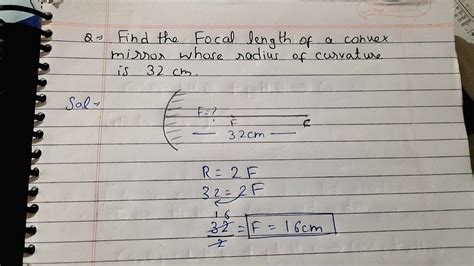 Q→ Find the Focal length of a convex
mirror whose radius of curvature
is 32 cm.
Sol→
F=?
F C
32cm
R = 2F
32 = 2F
16
32
2
= F = 16cm